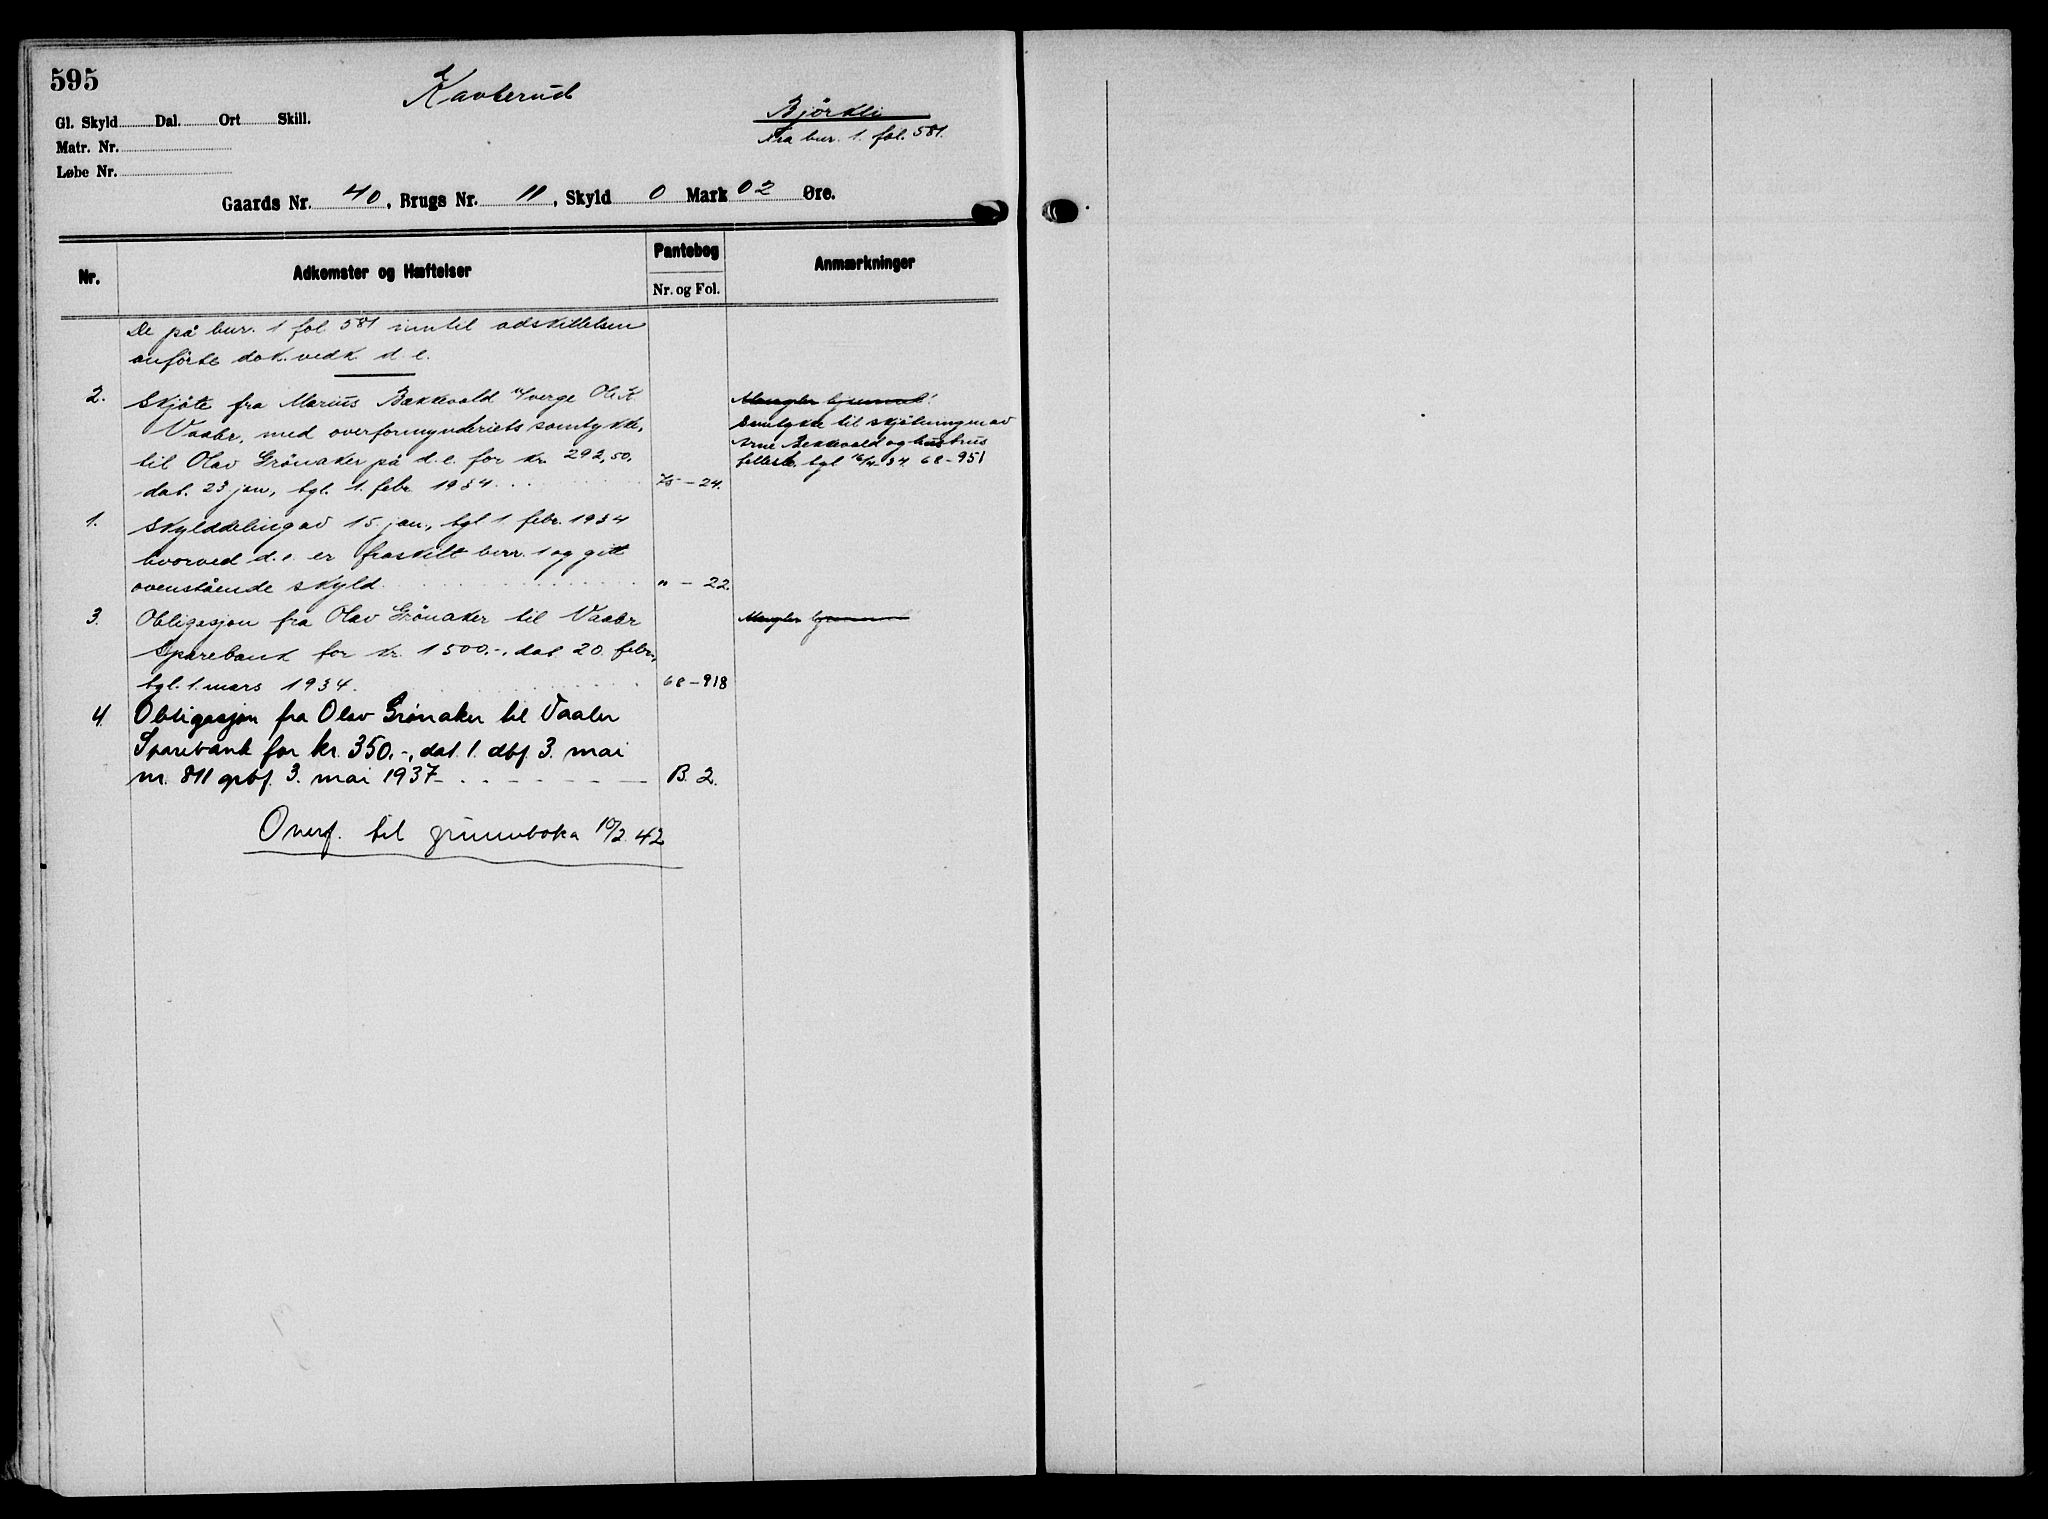 595
Kavlerud
Bjørkli
Fra bnr. 1. fol. 581.
Gl. Skyld Dal. Ort Skill.
Matr. Nr.
Løbe Nr.
Gaards Nr. 40, Brugs Nr. 11, Skyld 0 Mark 02 Øre.
Nr. Adkomster og Hæftelser Pantebog Nr. og Fol. Anmærkninger
De på bnr. 1 fol. 581 inntil adskillelsen
anførte dok. vedk. d. e.
2. Skjøte fra Marius Bækkevold v/verge Ole K.
Vaaler, med overformynderiets samtykke,
til Olav Grønaker på d. e. for kr. 292,50,
dat. 23 jan, tgl. 1. febr. 1934. 75 - 24.
Mangler hjemmel!
Samtykke til skjøtningen av
Arne Bekkevold og hustrus
tgl. 16/4-34. 68-951
1. Skylddeling av 15. jan., tgl. 1 febr. 1934
hvorved d. e. er fraskilt bnr. 1 og gitt
ovenstående skyld. " - 22.
3. Obligasjon fra Olav Grønaker til Vaaler
Sparebank for kr. 1500.-, dat. 20. febr.,
tgl. 1. mars 1934. 68-918
Mangler hjemmel
4. Obligasjon fra Olav Grønaker til Vaaler
Sparebank for kr. 350.-, dat. 1. dbf. 3. mai
nr. 811 grbf. 3. mai 1937 - B. 2.
Overf. til grunnboka 10/2. 42